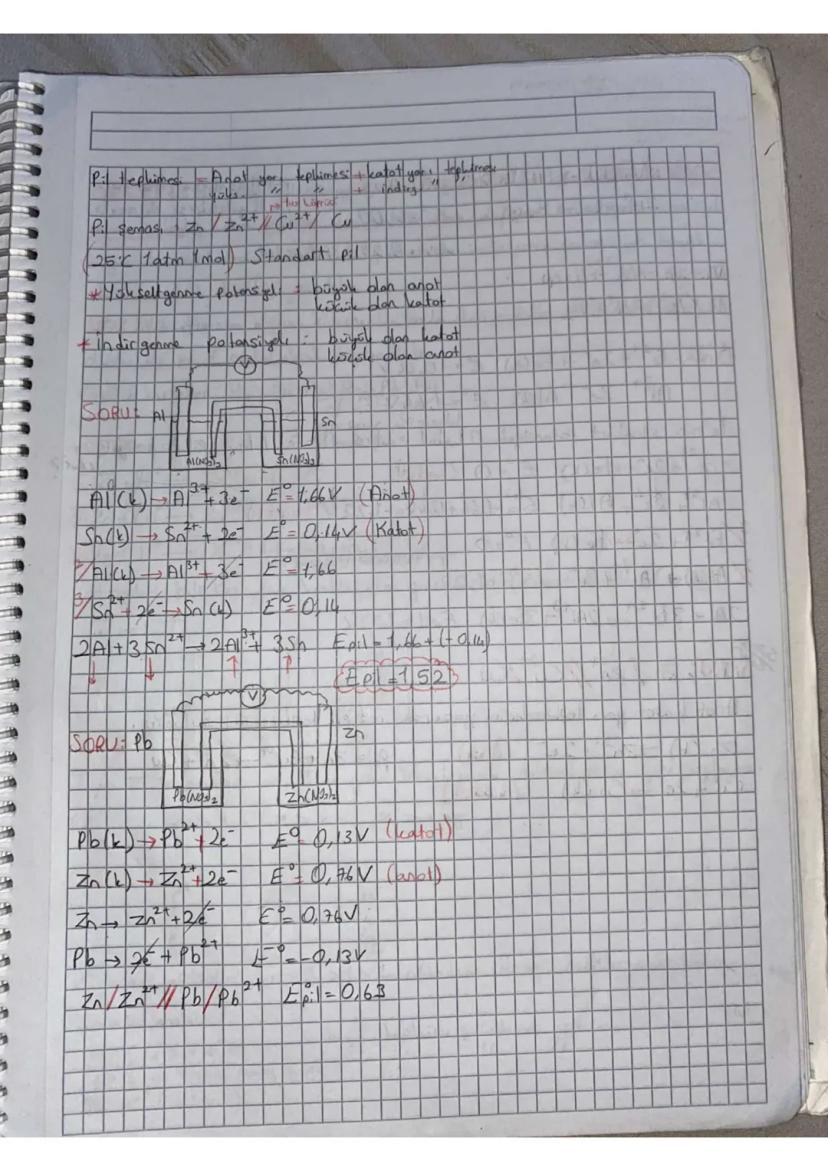 Pil tepkimesi = Anot yarı tepkimesi + katot yarı tepkimesi
yüks. " " + indirg " "
Pil şeması Zn / Zn²⁺ // Cu²⁺ / Cu
(25°C 1atm 1mol) Standart pil
* Yükseltgenme Potansiyeli : büyük olan anot
küçük olan katot
* İndirgenme potansiyeli : büyük olan katot
küçük olan anot
V
SORU: Al
Sn
Al(NO₃)₂ Sn(NO₃)₂
Al(k) → Al³⁺ + 3e⁻ E°= 1,66V (Anot)
Sn(k) → Sn²⁺ + 2e⁻ E°= 0,14V (Katot)
2/ Al(k) → Al³⁺ + 3e⁻ E°= 1,66
3/ Sn²⁺ + 2e⁻ → Sn(k) E°= 0,14
2Al + 3Sn²⁺ → 2Al³⁺ + 3Sn Epil = 1,66 + (-0,14)
Epil = 1,52
V
SORU: Pb
Zn
Pb(NO₃)₂ Zn(NO₃)₂
Pb(k) → Pb²⁺ + 2e⁻ E°= 0,13V (katot)
Zn(k) → Zn²⁺ + 2e⁻ E°= 0,76V (anot)
Zn → Zn²⁺ + 2e⁻ E°= 0,76V
Pb → 2e⁻ + Pb²⁺ E°= -0,13V
Zn / Zn²⁺ // Pb / Pb²⁺ E°pil = 0,63